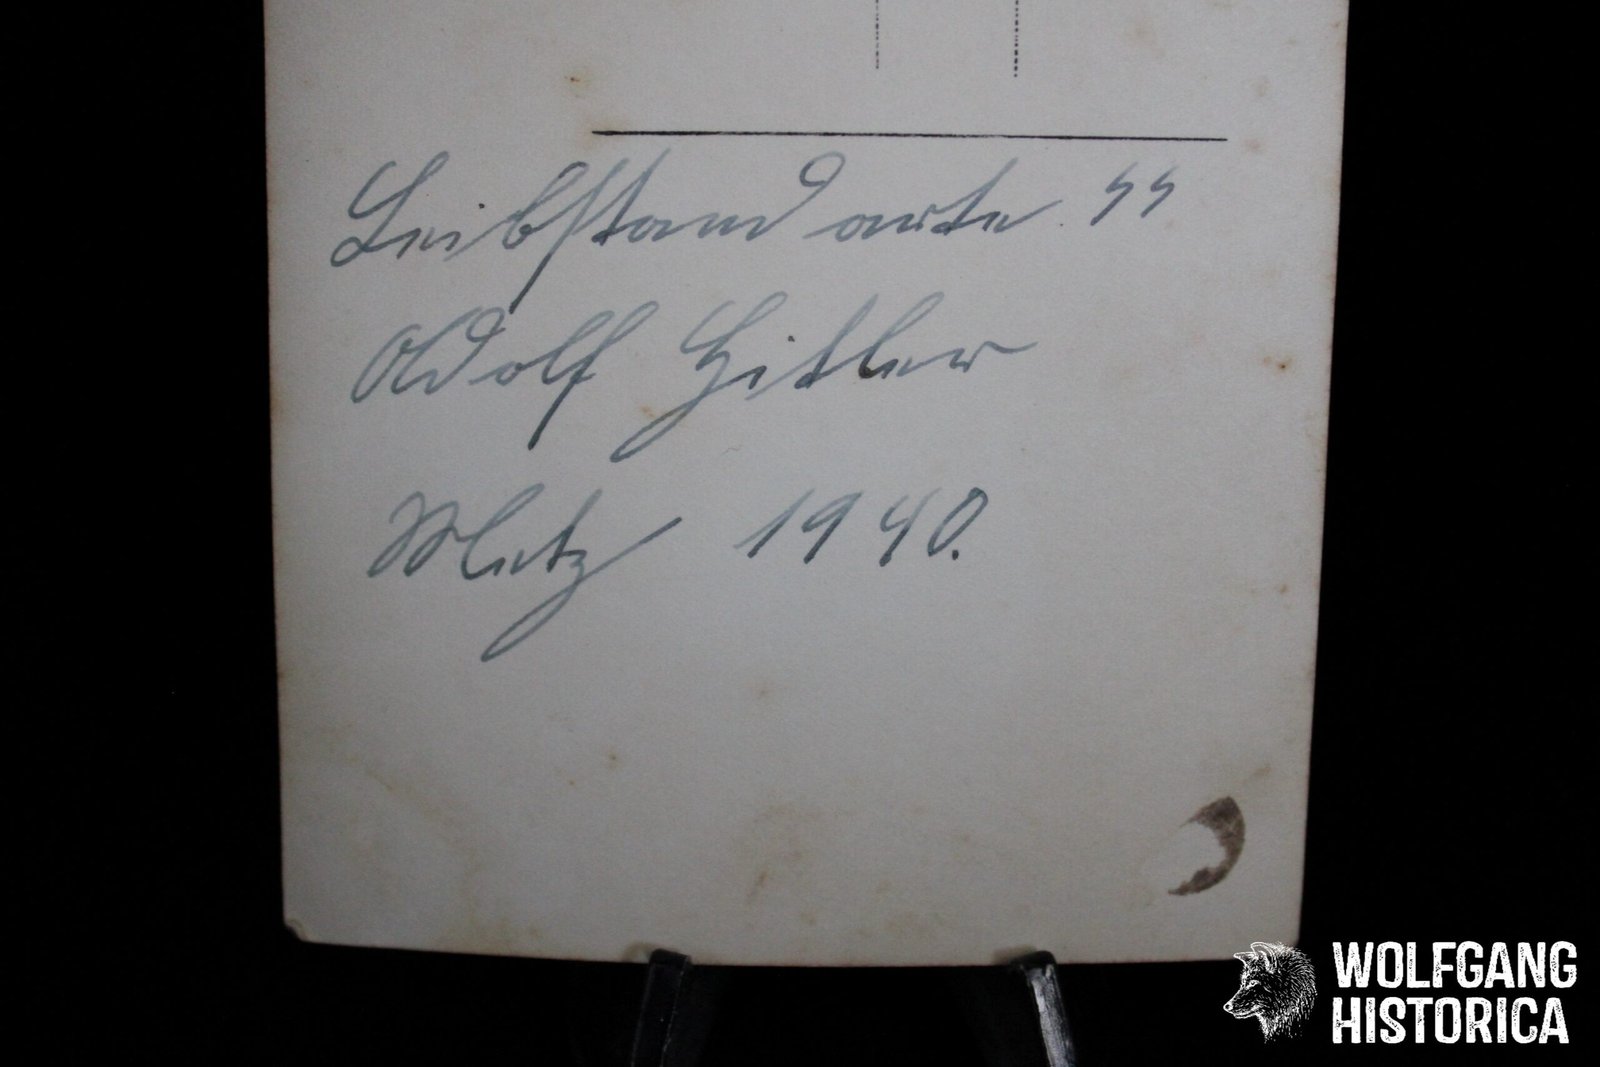 Leibstandarte SS
Adolf Hitler
Metz 1940.
WOLFGANG
HISTORICA